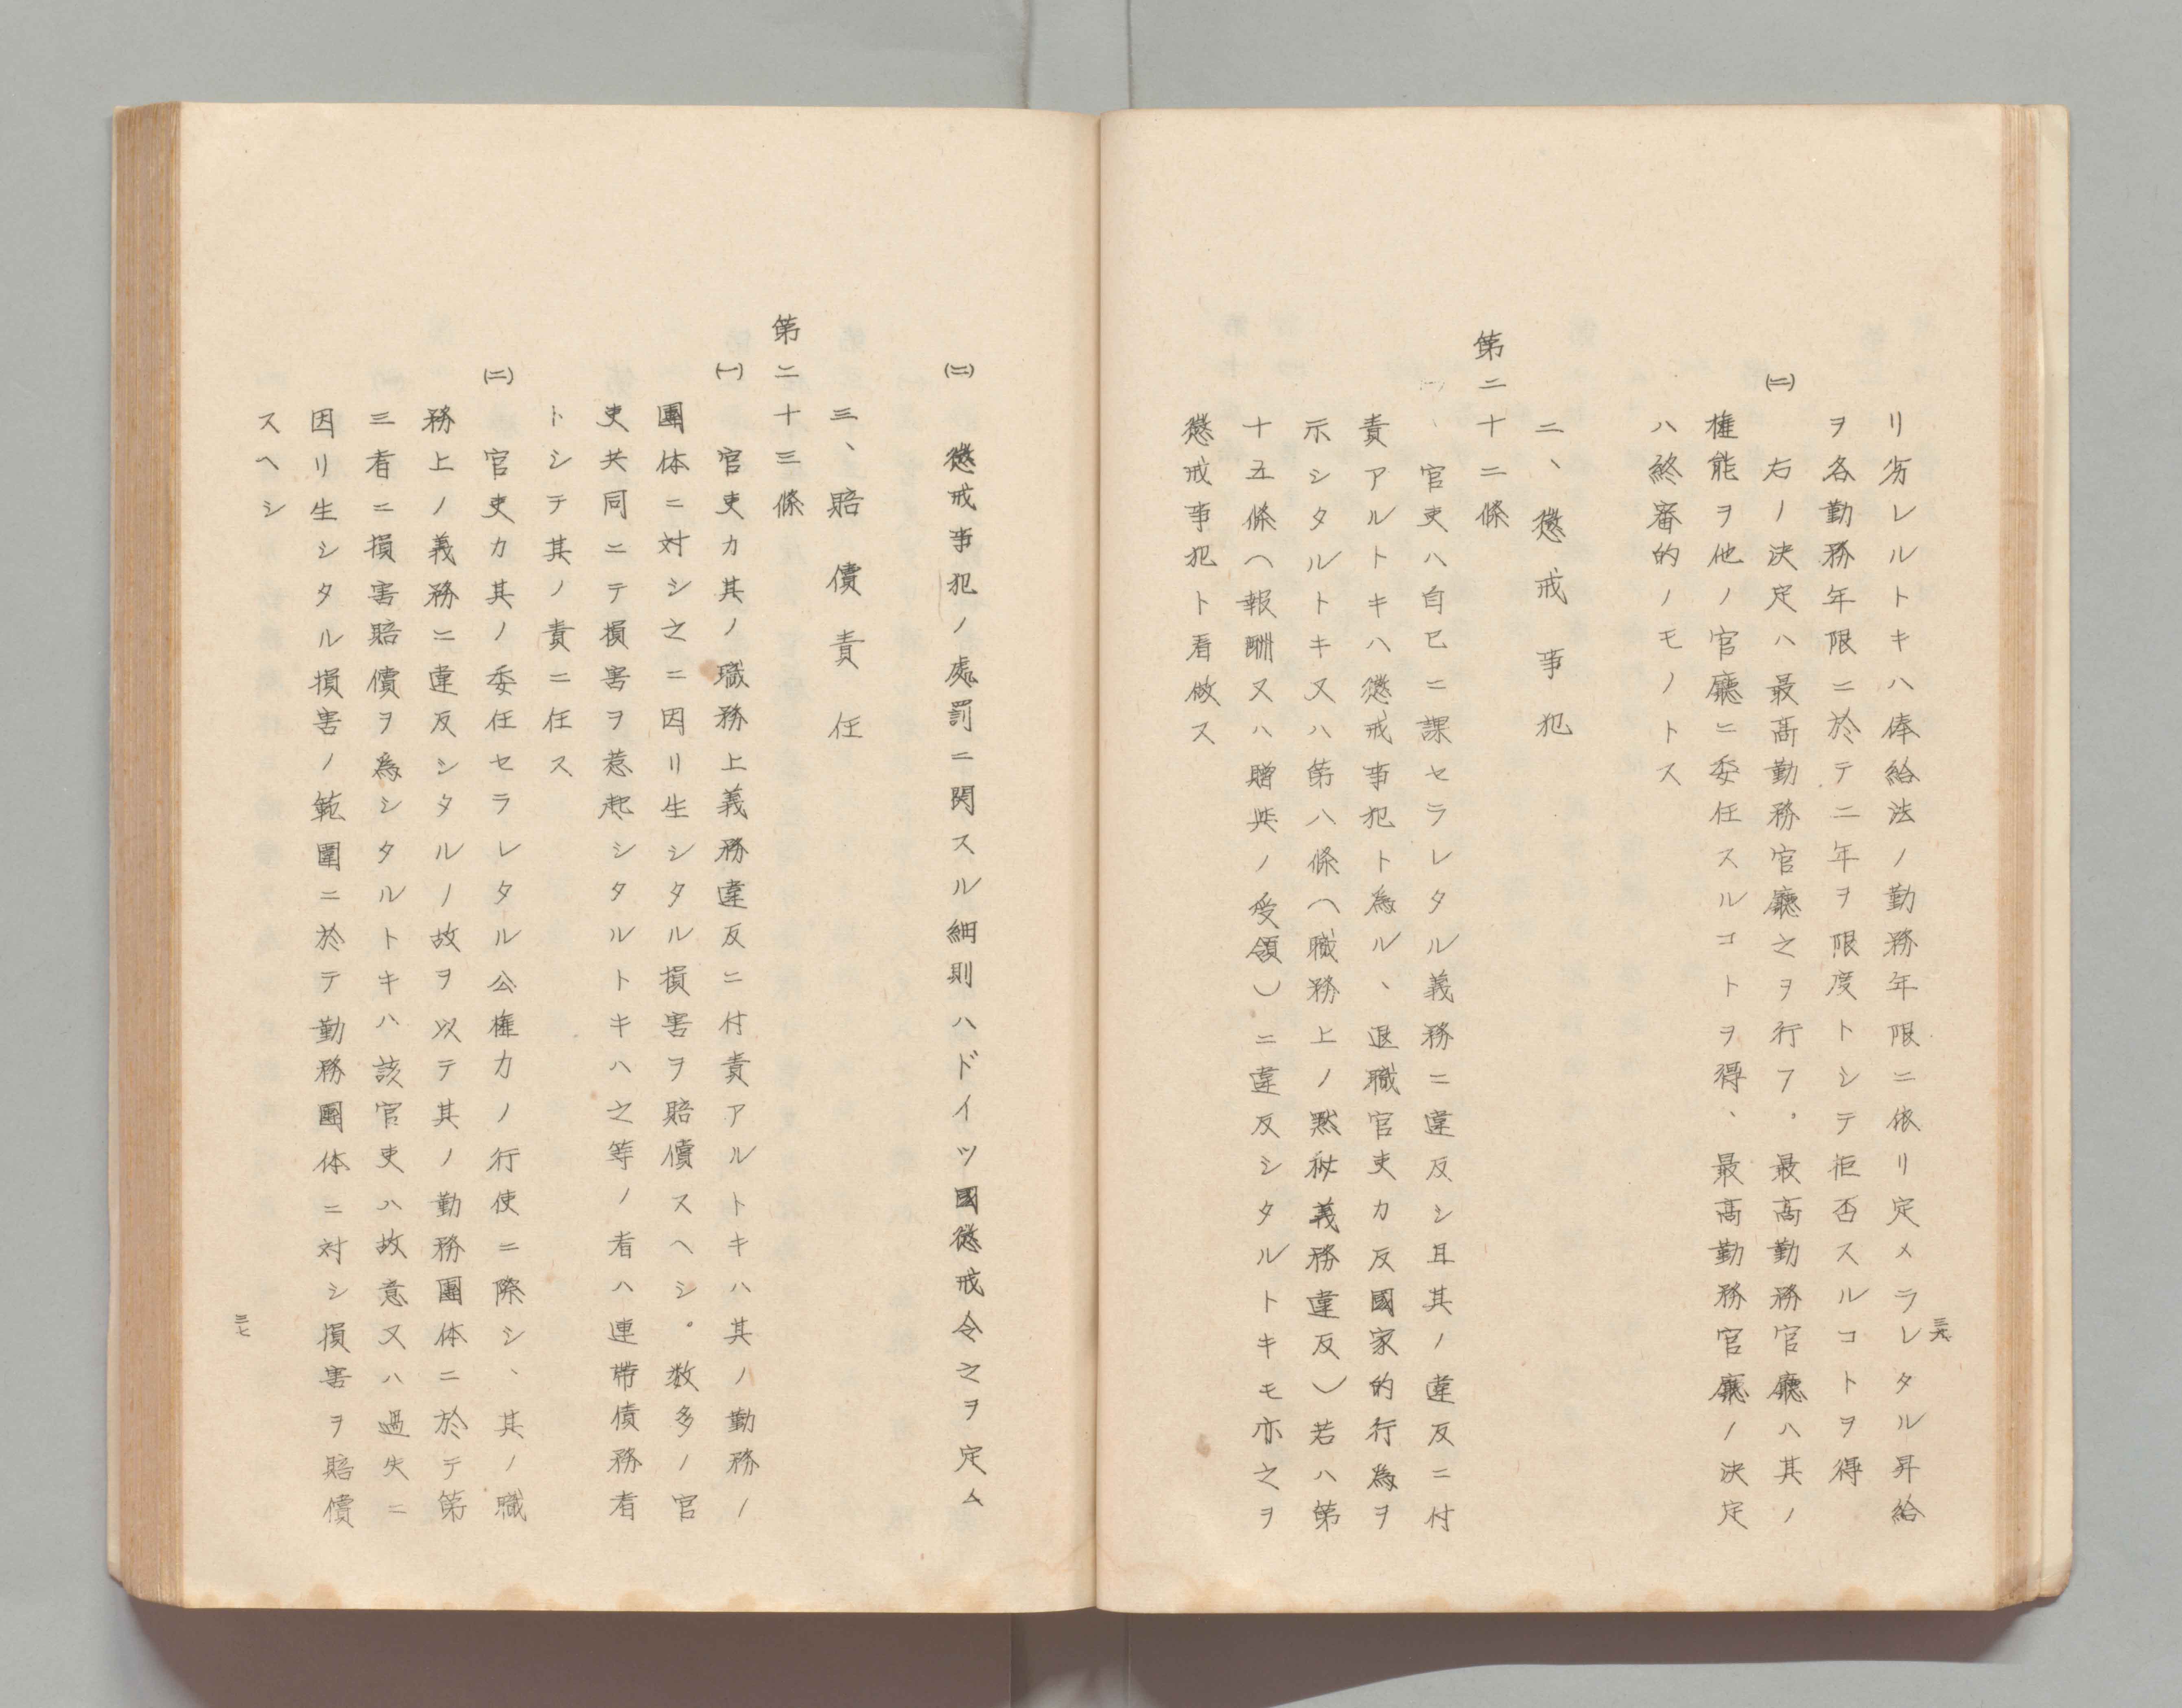 リ劣レルトキハ俸給法ノ勤務年限ニ依リ定メラレタル昇給
ヲ各勤務年限ニ於テ二年ヲ限度トシテ拒否スルコトヲ得
㈡　右ノ決定ハ最高勤務官廳之ヲ行フ。最高勤務官廳ハ其ノ
権能ヲ他ノ官廳ニ委任スルコトヲ得、最高勤務官廳ノ決定
ハ終審的ノモノトス
二、懲戒事犯
第二十二條
㈠、官吏ハ自己ニ課セラレタル義務ニ違反シ且其ノ違反ニ付
責アルトキハ懲戒事犯ト為ル、退職官吏カ反國家的行為ヲ
示シタルトキ又ハ第八條（職務上ノ黙秘義務違反）若ハ第
十五條（報酬又ハ贈與ノ受領）ニ違反シタルトキモ亦之ヲ
懲戒事犯ト看做ス
三六
㈡　懲戒事犯ノ處罰ニ関スル細則ハドイツ國懲戒令之ヲ定ム
三、賠償責任
第二十三條
㈠　官吏カ其ノ職務上義務違反ニ付責アルトキハ其ノ勤務ノ
團体ニ対シ之ニ因リ生シタル損害ヲ賠償スヘシ。数多ノ官
吏共同ニテ損害ヲ惹起シタルトキハ之等ノ者ハ連帯債務者
トシテ其ノ責ニ任ス
㈡　官吏カ其ノ委任セラレタル公権力ノ行使ニ際シ、其ノ職
務上ノ義務ニ違反シタルノ故ヲ以テ其ノ勤務團体ニ於テ第
三者ニ損害賠償ヲ為シタルトキハ該官吏ハ故意又ハ過失ニ
因リ生シタル損害ノ範圍ニ於テ勤務團体ニ対シ損害ヲ賠償
スヘシ
三七